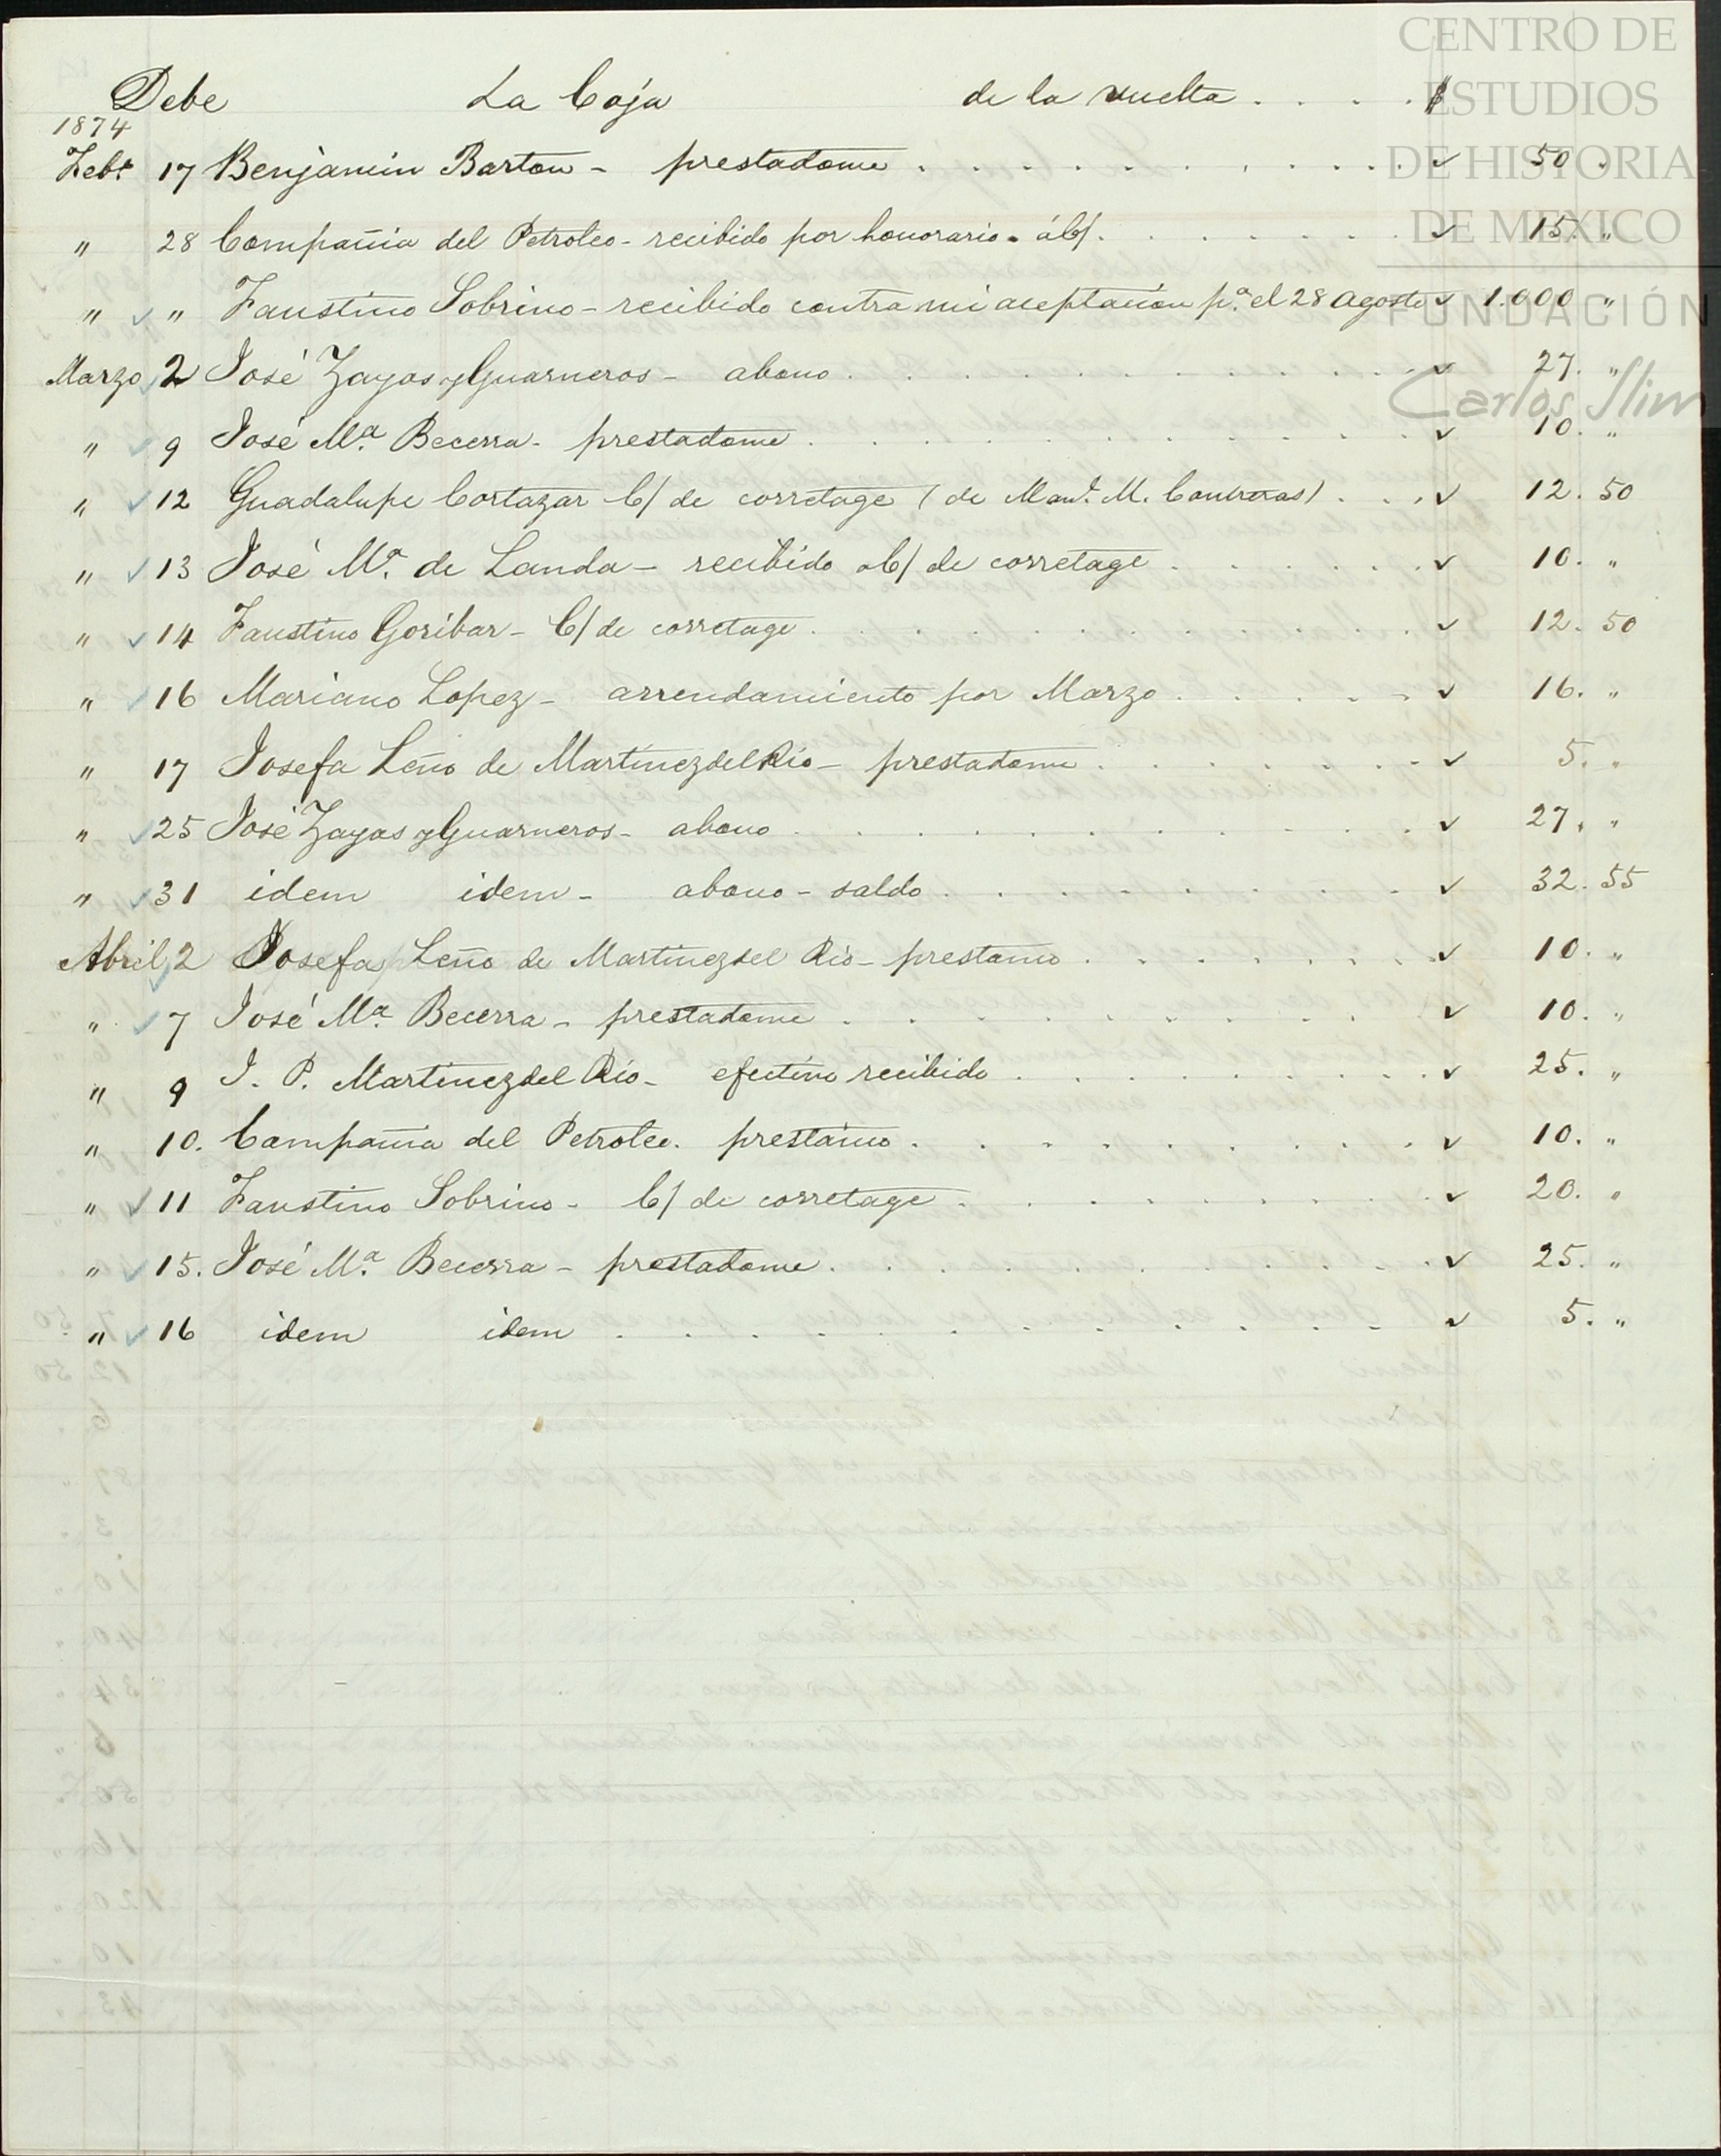 CENTRO DE
ESTUDIOS
DE HISTORIA
DE MEXICO
FUNDACIÓN
Carlos Slim
Debe La Caja de la vuelta . . . . . $
1874
Feb.º 17 Benjamin Barton - prestadome . . . . . . . . . . ✓ 50 "
" 28 Compañia del Petroleo - recibido por honorario. á C/ . . . . . . . ✓ 15. "
" ✓ " Faustino Sobrino - recibido contra mi aceptacion p.ª el 28 Agosto ✓ 1.000 "
Marzo ✓ 2 José Zayas y Guarneros - abono . . . . . . . . . . ✓ 27. "
" ✓ 9 José M.ª Becerra - prestadome . . . . . . . . . . ✓ 10. "
" ✓ 12 Guadalupe Cortazar C/ de corretage (de Man.l M. Contreras) . . . ✓ 12. 50
" ✓ 13 José M.ª de Landa - recibido á C/ de corretage . . . . . . ✓ 10. "
" ✓ 14 Faustino Goribar - C/ de corretage . . . . . . . . . . ✓ 12. 50
" ✓ 16 Mariano Lopez - arrendamiento por Marzo . . . . . ✓ 16. "
" 17 Josefa Leño de Martinez del Rio - prestadome . . . . . . . ✓ 5. "
" ✓ 25 José Zayas y Guarneros - abono . . . . . . . . . . ✓ 27. "
" ✓ 31 idem idem - abono - saldo . . . . . . . . . ✓ 32. 55
Abril ✓ 2 Josefa Leño de Martinez del Rio - prestamo . . . . . . . . ✓ 10. "
" ✓ 7 José M.ª Becerra - prestadome . . . . . . . . . . ✓ 10. "
" 9 J. P. Martinez del Rio - efectivo recibido . . . . . . . . . ✓ 25. "
" 10. Compañia del Petroleo. prestámo . . . . . . . . . ✓ 10. "
" ✓ 11 Faustino Sobrino - C/ de corretage . . . . . . . . ✓ 20. "
" ✓ 15. José M.ª Becerra - prestadome . . . . . . . . . . ✓ 25. "
" ✓ 16 idem idem . . . . . . . . . . . . . ✓ 5. "